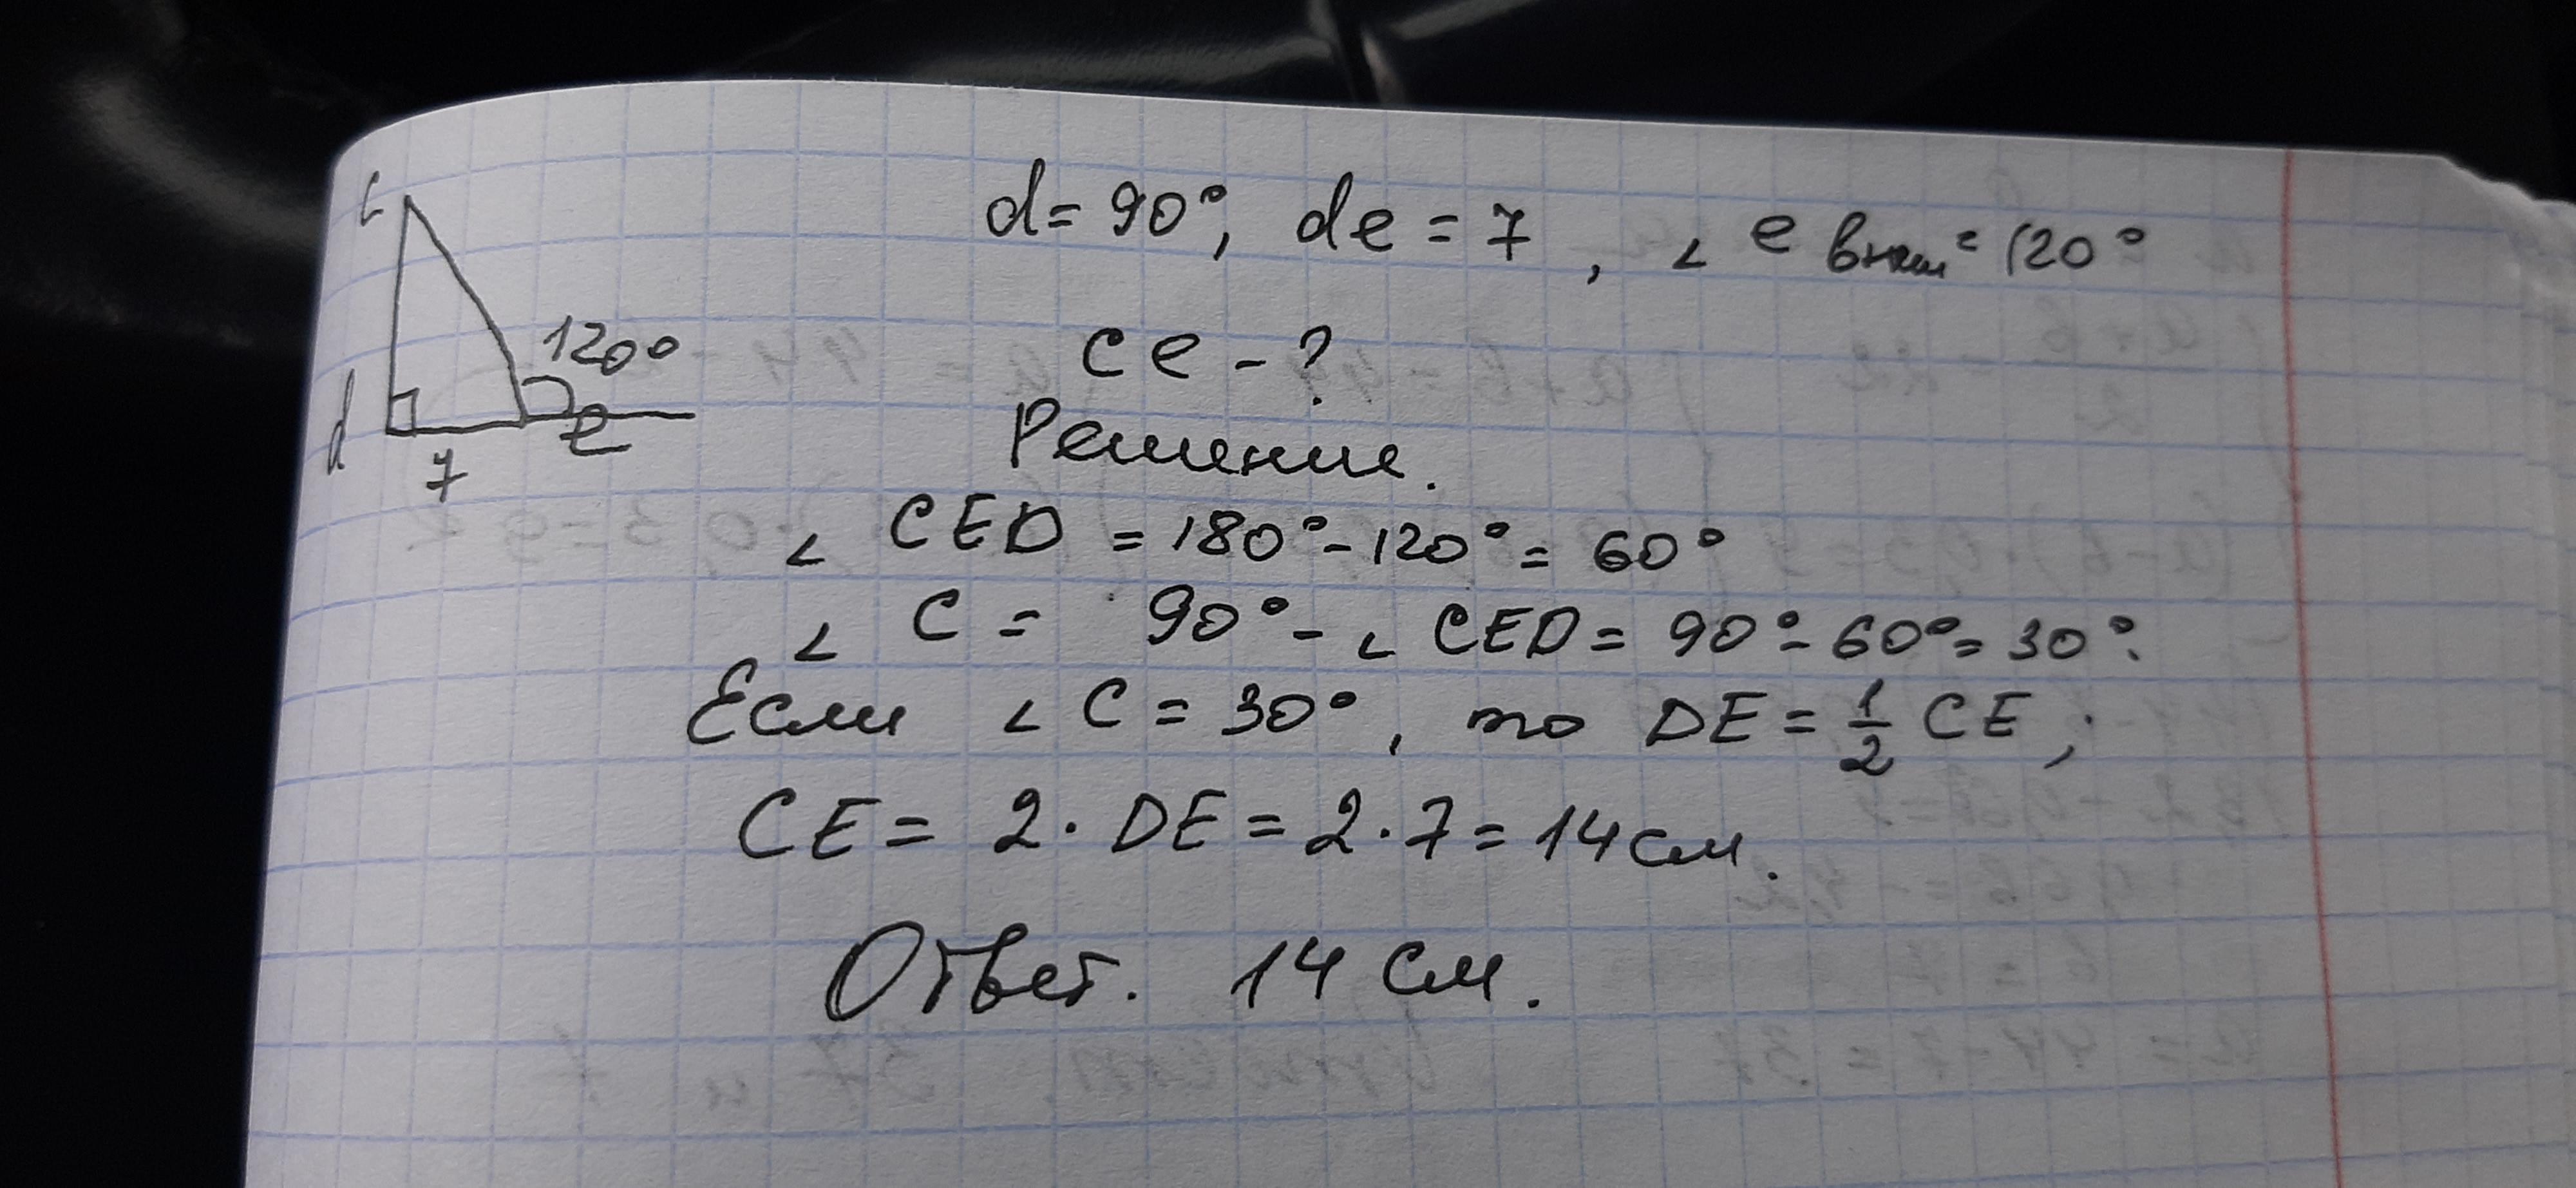 d = 90°, de = 7, ∠ e внеш = 120°
C
120°
d
e
7
ce - ?
Решение.
∠ CED = 180° - 120° = 60°
∠ C = 90° - ∠ CED = 90° - 60° = 30°.
Если ∠ C = 30°, то DE = 1/2 CE;
CE = 2 · DE = 2 · 7 = 14 см.
Ответ. 14 см.